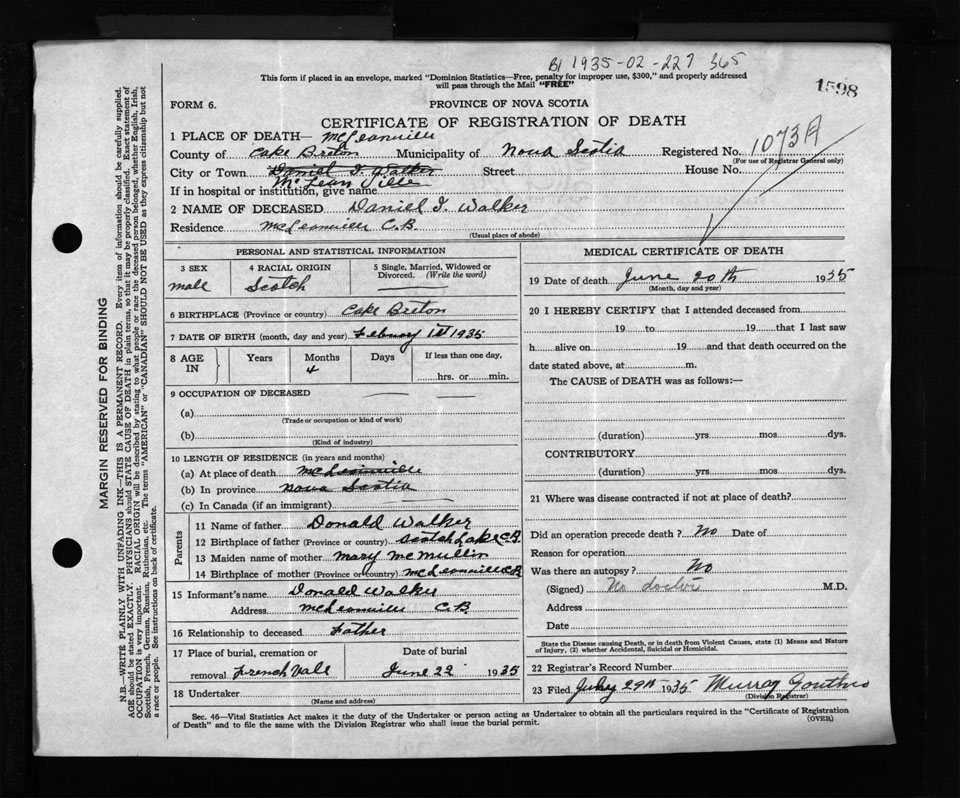 B1 1935-02-227 365
This form if placed in an envelope, marked "Dominion Statistics—Free, penalty for improper use, $300," and properly addressed
will pass through the Mail "FREE"
1598
FORM 6.
PROVINCE OF NOVA SCOTIA
CERTIFICATE OF REGISTRATION OF DEATH
1 PLACE OF DEATH— McLeonville
County of Cape Breton Municipality of Nova Scotia Registered No. 1073A
(For use of Registrar General only)
City or Town Daniel I. Walker Street House No.
McLean Ville
If in hospital or institution, give name
2 NAME OF DECEASED Daniel I. Walker
Residence McLeonville C.B.
(Usual place of abode)
PERSONAL AND STATISTICAL INFORMATION
3 SEX 4 RACIAL ORIGIN 5 Single, Married, Widowed or
Divorced. (Write the word)
male Scotch
6 BIRTHPLACE (Province or country) Cape Breton
7 DATE OF BIRTH (month, day and year) Febuary 1st 1935
8 AGE IN Years Months Days If less than one day,
4
hrs. or min.
9 OCCUPATION OF DECEASED
(a)
(Trade or occupation or kind of work)
(b)
(Kind of industry)
10 LENGTH OF RESIDENCE (in years and months)
(a) At place of death McLeonville
(b) In province Nova Scotia
(c) In Canada (if an immigrant)
Parents
11 Name of father Donald Walker
12 Birthplace of father (Province or country) Scotch Lake C.B.
13 Maiden name of mother Mary McMullin
14 Birthplace of mother (Province or country) McLeonville C.B
15 Informant's name Donald Walker
Address McLeonville C.B.
16 Relationship to deceased Father
17 Place of burial, cremation or Date of burial
removal French Vale June 22 1935
18 Undertaker
(Name and address)
MEDICAL CERTIFICATE OF DEATH
19 Date of death June 20th 1935
(Month, day and year)
20 I HEREBY CERTIFY that I attended deceased from
19 to 19 that I last saw
h alive on 19 and that death occurred on the
date stated above, at m.
The CAUSE of DEATH was as follows:—
(duration) yrs. mos. dys.
CONTRIBUTORY
(duration) yrs. mos. dys.
21 Where was disease contracted if not at place of death?
Did an operation precede death ? No Date of
Reason for operation
Was there an autopsy ? No
(Signed) No doctor M.D.
Address
Date
State the Disease causing Death, or in death from Violent Causes, state (1) Means and Nature
of Injury, (2) whether Accidental, Suicidal or Homicidal.
22 Registrar's Record Number
23 Filed July 29th 1935 Murray
(Division Registrar)
Sec. 46—Vital Statistics Act makes it the duty of the Undertaker or person acting as Undertaker to obtain all the particulars required in the "Certificate of Registration
of Death" and to file the same with the Division Registrar who shall issue the burial permit.
(OVER)
MARGIN RESERVED FOR BINDING
N.B.—WRITE PLAINLY WITH UNFADING INK—THIS IS A PERMANENT RECORD. Every item of information should be carefully supplied.
AGE should be stated EXACTLY. PHYSICIANS should STATE CAUSE OF DEATH in plain terms, so that it may be properly classified. Exact statement of
OCCUPATION is very important. RACIAL ORIGIN will be described by stating to what people or race the deceased person belonged, whether English, Irish,
Scottish, French, German, Russian, Ruthenian, etc. The terms "AMERICAN" or "CANADIAN" SHOULD NOT BE USED as they express citizenship but not
a race or people. See instructions on back of certificate.